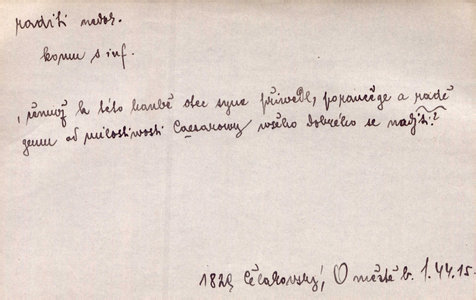 raditi nedok.
komu s inf.
k této hanbě otec syna přivedl, poraučege a radě
gemu od milostiwosti Caesarowy wšeho dobrého se nadjti?
1829 Čelakovský, O městě b. 1.44.15.